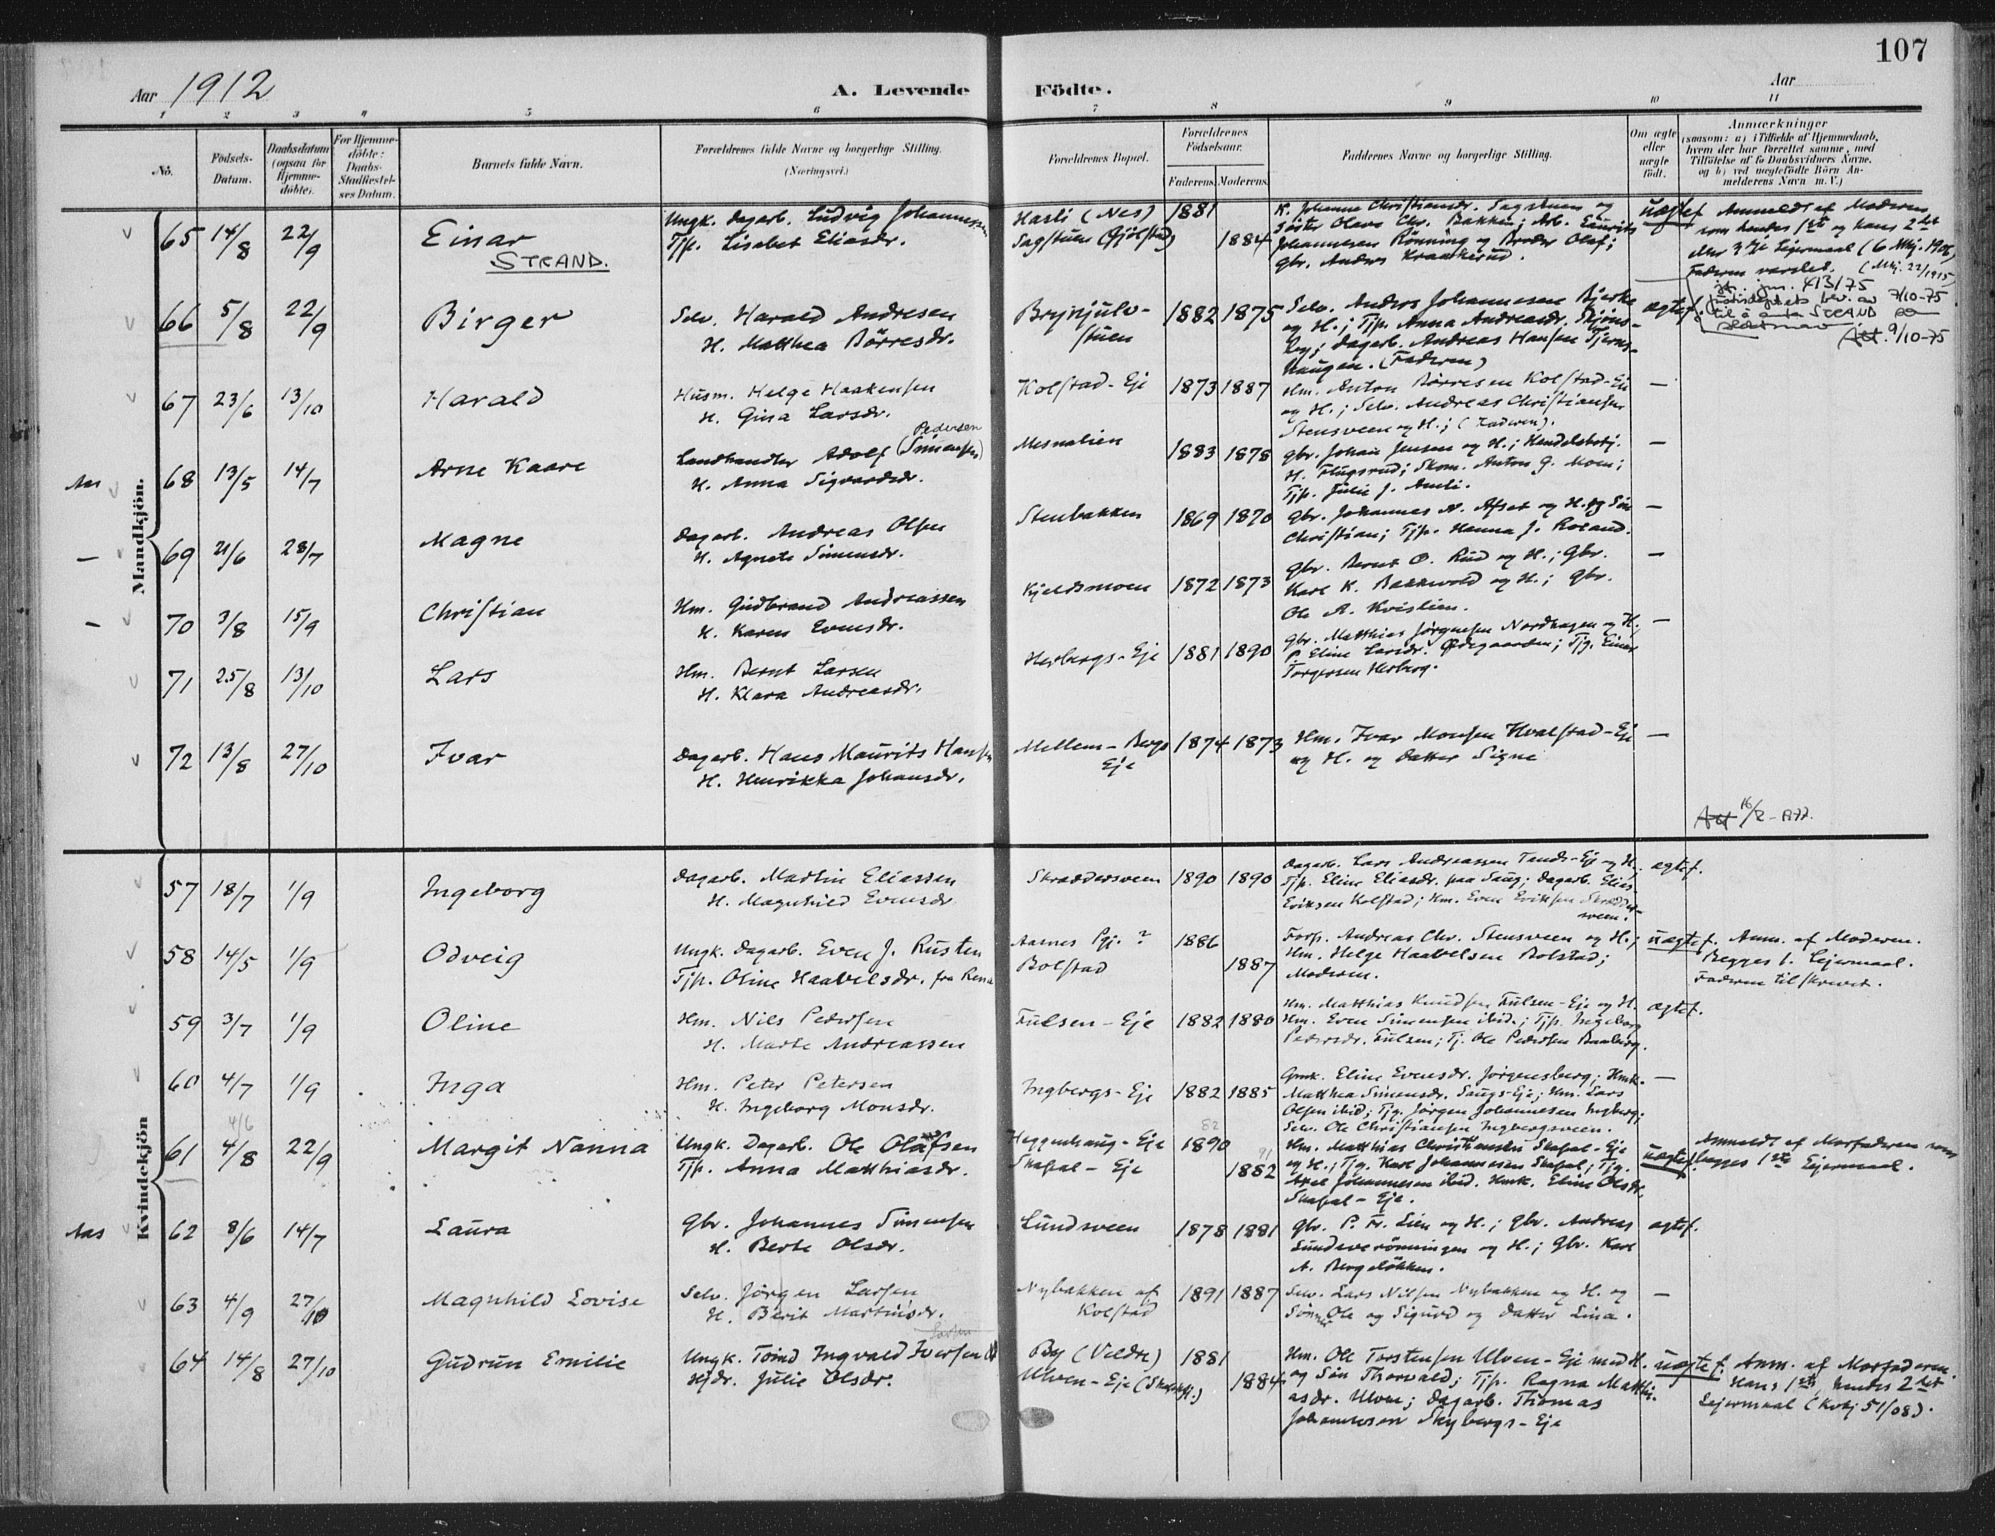 107
Aar 1912
A. Levende Födte.
Aar
1 2 3 4 5 6 7 8 9 10 11
No.
Fødsels-Datum.
Daabsdatum (ogsaa for Hjemme-döbte).
For Hjemme-döbte: Daabs-Stadfæstel-ses Datum.
Barnets fulde Navn.
Forældrenes fulde Navne og borgerlige Stilling.
(Næringsvei.)
Forældrenes Bopæl.
Forældrenes Födselsaar.
Faderens. Moderens.
Faddernes Navne og borgerlige Stilling.
Om ægte eller uægte födt.
Anmærkninger
(saasom: a) i Tilfælde af Hjemmedaab,
hvem der har forrettet samme, med
Tilföielse af to Daabsvidners Navne,
og b) ved uægtefödte Börn An-
melderens Navn m. V.)
Mandkjön.
65 14/8 22/9 Einar STRAND.
Ungk. Dagarb. Ludvig Johannessen
Tjp. Lisabet Eliasdr.
Hasli (Nes)
Sagstuen (Gjölstad)
1881
1884
K. Johanne Christiansdr. Sagstuen og
Söster Olava Chr. Bakken; Arb. Laurits
Johannesen Rönning og Broder Olaf;
Gbr. Anders Kraakerud.
uægtef.
Anmeldt af Moderen
som hendes 1ste og hans 2det
eller 3die Lejermaal (6 Mkj. 1906,
Faderen varslet. (Mkj. 22/1915)
jfr. jnr. 413/75
Justisdeptets bev. av 7/10-75
til å anta STRAND
9/10-75
66 5/8 22/9 Birger
Selv. Harald Andresen
H. Matthea Börresdr.
Brynjulv-
stuen
1882 1875
Selv. Anders Johannesen Bjerke
og H.; Tjp. Anna Andreasdr. Skjöns-
by; Dagarb. Andreas Hansen Tjerns-
haugen. (Faderen)
ægtef.
67 23/6 13/10 Harald
Husm. Helge Haakensen
H. Gina Larsdr.
Kolstad-Eje
1873 1887
Hm. Anton Börresen Kolstad-Eje
og H.; Selv. Andreas Christiansen
Stensveen og H.; (Faderen).
—
Aas 68 13/5 14/7 Arne Kaare
Pedersen
Landhandler Adolf (Simensen)
H. Anna Sigvardsdr.
Mesnalien
1883 1878
Gbr. Johan Jensen og H.; Handelsbetj.
H. Flugsrud; Skom. Anton G. Moen;
Tjp. Julie J. Aasli.
—
— 69 21/6 28/7 Magne
Dagarb. Andreas Olsen
H. Agnete Simensdr.
Stenbakken
1869 1870
Gbr. Johannes N. Afset og H. og Sön
Christian; Tjp. Hanna J. Roland.
—
— 70 3/8 15/9 Christian
Hm. Gudbrand Andreassen
H. Karen Evensdr.
Kjeldsmoen
1872 1873
Gbr. Bernt O. Rud og H.; Gbr.
Karl K. Bakkevold og H.; Gbr.
Ole A. Kvislien.
—
71 25/8 13/10 Lars
Hm. Bernt Larsen
H. Klara Andreasdr.
Herbergs-Eje
1881 1890
Gbr. Matthias Jörgensen Nordhagen og H.;
P. Eline Larsdr. Ödegaarden; Tjg. Einar
Torgersen Herberg.
—
72 13/8 27/10 Ivar
Dagarb. Hans Maurits Hansen
H. Henrikka Johansdr.
Mellem-Bergs
Eje
1874 1873
Hm. Ivar Monsen Hvalstad-Eje
og H. og Datter Signe
—
16/2-1977.
Kvindekjön
57 18/7 1/9 Ingeborg
Dagarb. Martin Eliassen
H. Magnhild Evensdr.
Skræddersveen
1890 1890
Dagarb. Lars Andreassen Tande-Eje og H.;
Tjp. Eline Eliasdr. paa Saug; Dagarb. Elias
Eriksen Kolstad; Hm. Even Eriksen Skrædder-
sveen.
ægtef.
58 14/5 1/9 Odveig
Ungk. Dagarb. Even J. Rusten
Tjp. Oline Haavelsdr. fra Rena
Aasnes Pgj. ?
Bolstad
1886
1887
Forp. Andreas Chr. Stensveen og H.;
Hm. Helge Haavelsen Bolstad;
Moderen.
uægtef.
Anm. af Moderen.
Begges 1. Lejermaal.
Faderen tilskrevet.
59 3/7 1/9 Oline
Hm. Nils Pedersen
H. Marte Andreassen
Fulsen-Eje
1882 1880
Hm. Matthias Knudsen Fulsen-Eje og H.
Hm. Even Simensen ibid.; Tjp. Ingeborg
Pedersdr. Fulsen; Tj. Ole Pedersen
ægtef.
60 4/7 1/9 Inga
Hm. Peter Petersen
H. Ingeborg Monsdr.
Ingbergs-Eje
1882 1885
Gmk. Eline Evensdr. Jörgensberg; Hmk.
Matthea Simensdr. Saugs-Eje; Hm. Lars
Olsen ibid; Tjg. Jörgen Johannesen Ingberg;
Selv. Ole Christiansen Ingbergsveen.
—
4/6
61 4/8 22/9 Margit Nanna
Ungk. Dagarb. Ole Olafsen
Tjp. Anna Matthiasdr.
Heggenhaug-Eje
Skappal-Eje
82
1890
91
1882
Hm. Matthias Christiansen Skappal-Eje
og H.; Tjg. Karl Johannesen Skappal; Tjg.
Axel Johannesen ibid. Hmk. Eline Olsdr.
Skappal-Eje.
uægtef.
Anmeldt af Morfaderen som
begges 1ste Lejermaal.
Aas 62 8/6 14/7 Laura
Gbr. Johannes Simensen
H. Berte Olsdr.
Lundsveen
1878 1881
Gbr. P. Fr. Lien og H.; Gbr. Andreas
Lundsverönningen og H.; Gbr. Karl
A. Bergelökken.
ægtef.
63 4/9 27/10 Magnhild Lovise
Selv. Jörgen Larsen
H. Berit Martinsdr.
Nybakken af
Kolstad
1891 1887
Selv. Lars Nilsen Nybakken og H. og
Sönner Ole og Sigurd og Datter Lina.
—
64 14/8 27/10 Gudrun Emilie
Larsen
Ungk. Tömd Ingvald Iversen
Hjdr. Julie Olsdr.
By (Veldre)
Ulven-Eje
1881
1884
Hm. Ole Torstensen Ulven-Eje med H.
og Sön Thorvald; Tjp. Ragna Matthi-
asdr. Ulven; Dagarb. Thomas
Johannesen Skybergs-Eje
uægtef.
Anm. af Morfaderen.
Hans 1ste, hendes 2det
Lejermaal (Kvkj 51/08).